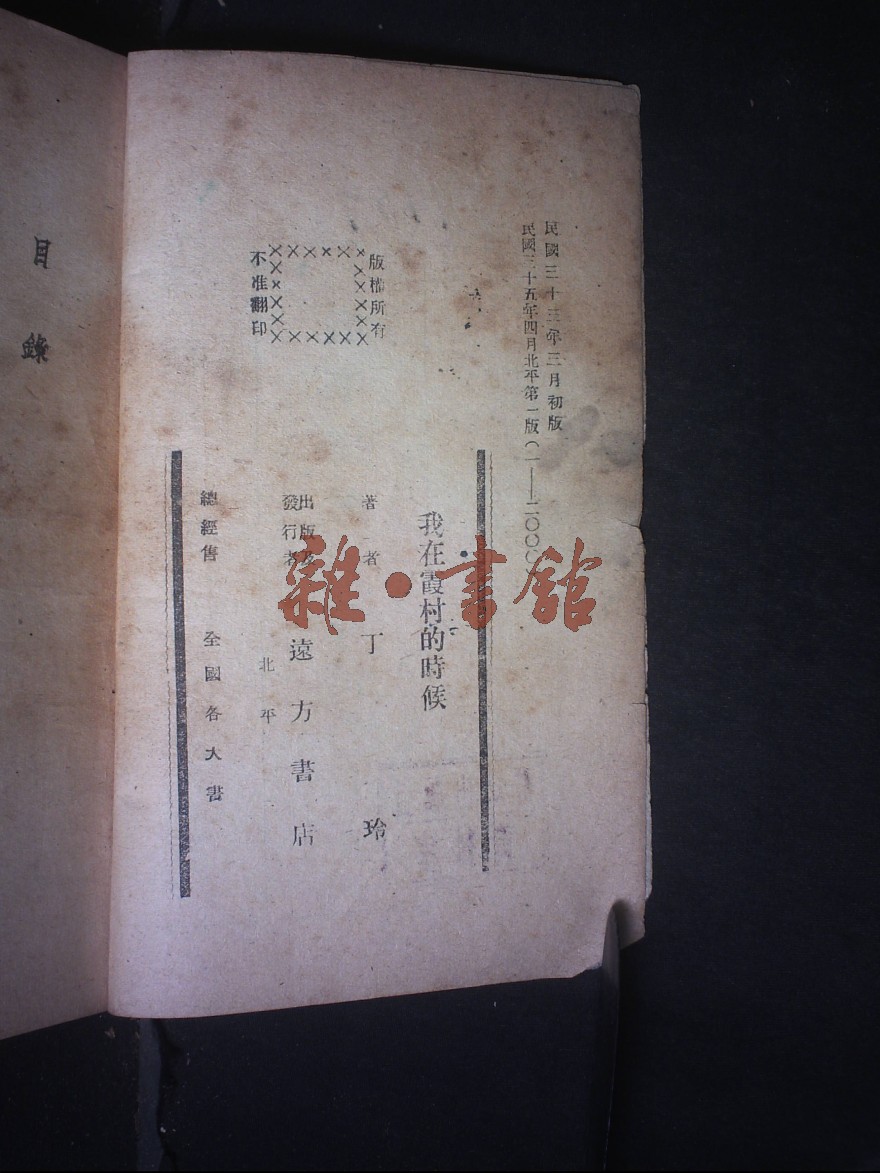 民國三十三年三月初版
民國三十五年四月北平第一版(一——二〇〇〇
版權所有
不准翻印
我在霞村的時候
著者 丁玲
出版及
發行者 遠方書店
北平
總經售 全國各大書
雜·書館
目錄